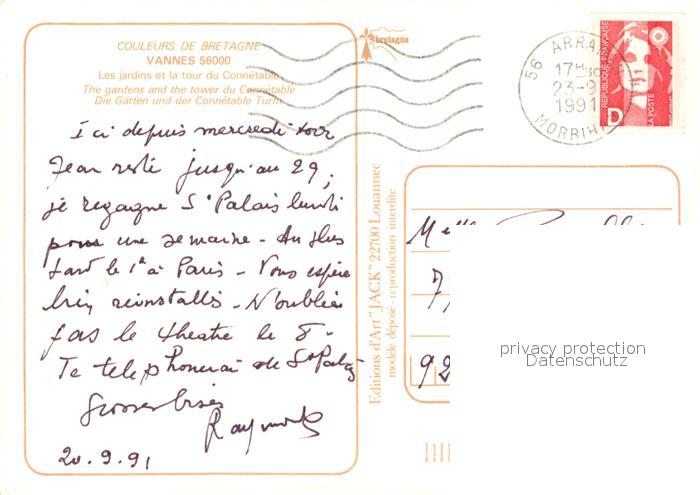 COULEURS DE BRETAGNE
VANNES 56000
Les jardins et la tour du Connétable
The gardens and the tower du Connétable
Die Gärten und der Connétable Turm
bretagne
56 ARRA
17H30
23-9
1991
MORBIH
REPUBLIQUE FRANÇAISE
D
LA POSTE
Ici depuis mercredi soir
Jean reste jusqu'au 29,
je regagne St Palais lundi
pour une semaine - Au plus
tard le 1er à Paris - Vous espère
bien réinstallés - N'oubliez
pas le theatre le 8 -
Te telephonerai de St Palais
Grosses bises
Raymonde
20.9.91
Editions d'Art "JACK" 22700 Louannec
modèle déposé - reproduction interdite
Melle
7
92
privacy protection
Datenschutz